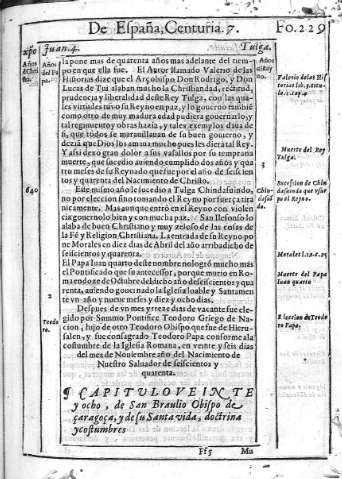 De España, Centuria. 7.
FO. 229
xpo Juan. 4.
Tulga.
Años de Christo.
Años del Papa.
Años del Rey no.
la pone mas de quarenta años mas adelante del tiem-
po en que ella fue. El Autor llamado Valerio de las
Historias dize que el Arçobispo Don Rodrigo, y Don
Lucas de Tui alaban mucho la Christiandad, rectitud,
prudencia y liberalidad deste Rey Tulga, con las qua-
les virtudes tuvo su Reyno en paz, y lo gouerno tambie
como otro de muy madura edad pudiera gouernarlo, y
tal regimiento y obras hazia, y tales exemplos daua de
si, que todos se marauillauan de su buen gouierno, y
dezia que Dios los amaua mucho pues les diera tal Rey.
Y assi dexo gran dolor a sus vassallos por su temprana
muerte, que sucedio auiendo cumplido dos años y qua
tro meses de su Reynado que fue por el año de seiscien
tos y quarenta del Nacimiento de Christo.
Este mismo año le sucedio a Tulga Chindasuindo,
no por eleccion sino tomando el Reyno por fuerça tira
nicamente. Mas aunque entrò en el Reyno con violen
cia gouernolo bien y con mucha paz. San Ilefonso lo
alaba de buen Christiano y muy zeloso de las cosas de
la Fè y Religion Christiana. La entrada de su Reyno po
ne Morales en diez dias de Abril del año arriba dicho de
seiscientos y quarenta.
El Papa Iuan quarto deste nombre no logrò mucho mas
el Pontificado que su antecessor, porque murio en Ro-
ma a doze de Octubre del dicho año de seiscientos y qua
renta, auiendo gouernado la Iglesia loable y Santamen
te vn año y nueue meses y diez y ocho dias.
Despues de vn mes y treze dias de vacante fue ele-
gido por Summo Pontifice Teodoro Griego de Na-
cion, hijo de otro Teodoro Obispo que fue de Hieru-
salen, y fue consagrado Teodoro Papa conforme a la
costumbre de la Iglesia Romana, en veynte y seis dias
del mes de Nouiembre año del Nacimiento de
Nuestro Saluador de seiscientos y
quarenta.
¶ CAPITULO VEINTE
y ocho, de San Braulio Obispo de
çaragoça, y de su Santa vida, doctrina
y costumbres
Ff5
Mu
640
2
Teodoro.
3
Chindasuïdo.
Valerio de las Historias
Muerte del Rey
Tulga.
Morales l. 12. c.
Muerte del Papa
Iuan quarto
Eleccion de Teodo
ro Papa.